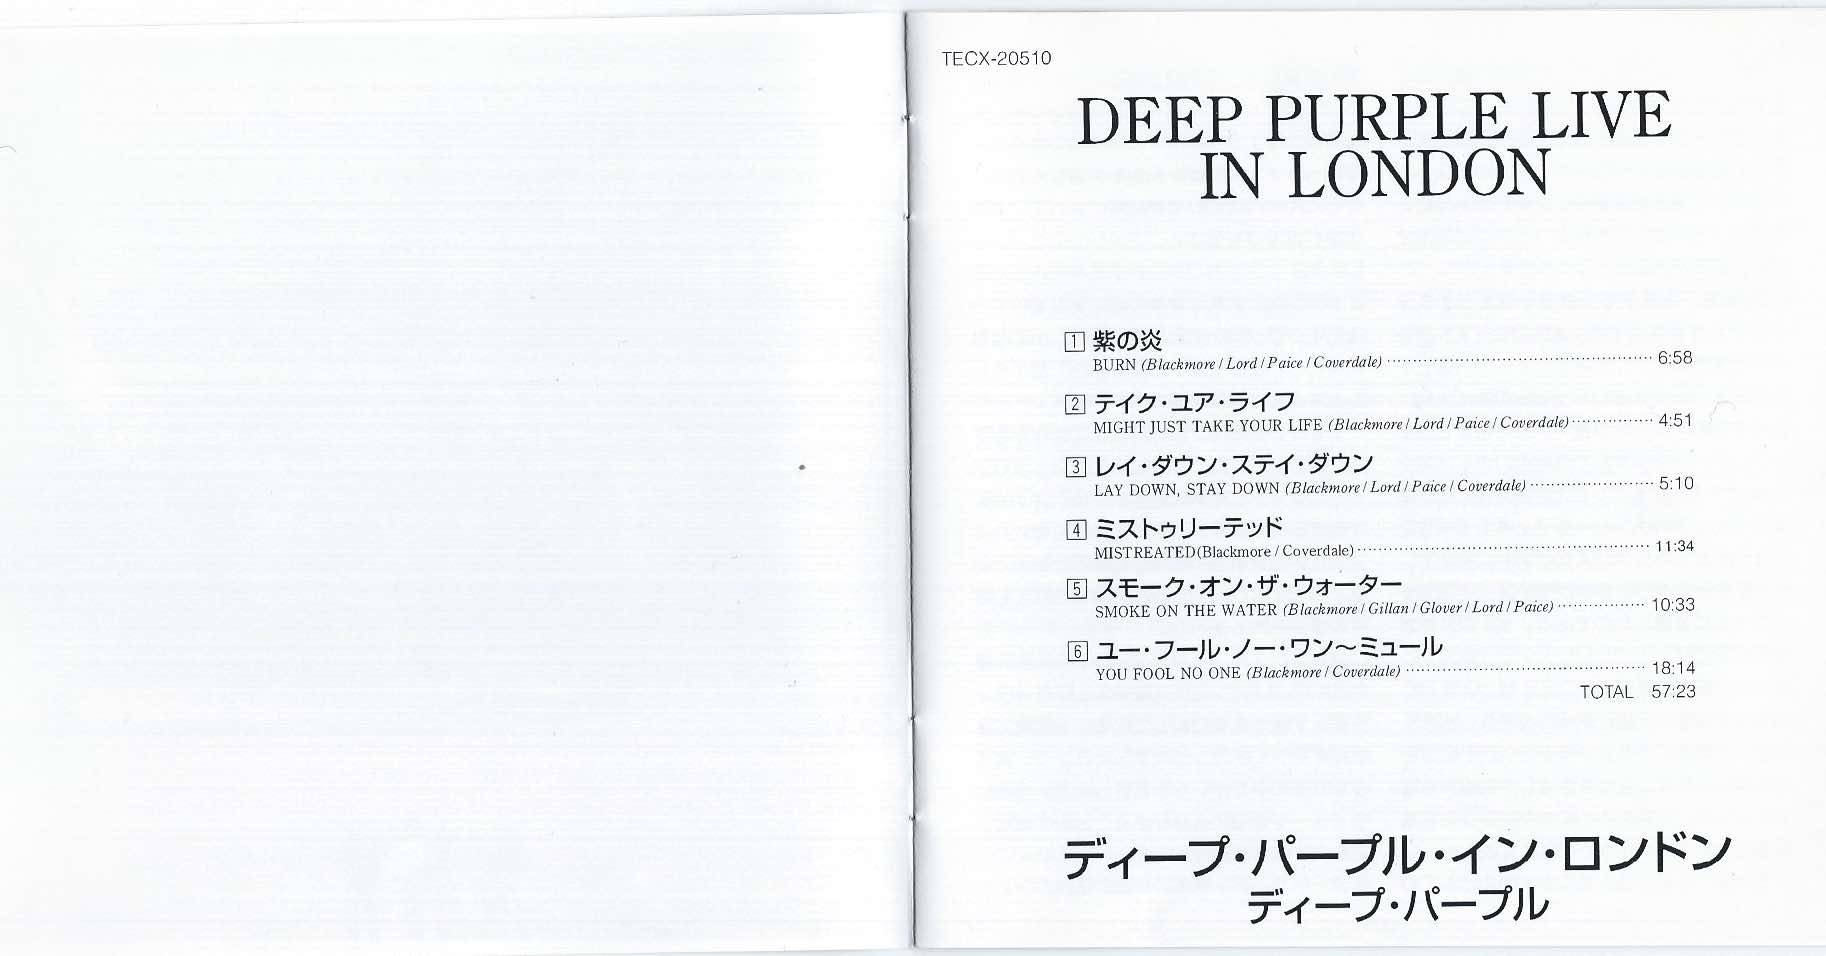 TECX-20510
DEEP PURPLE LIVE
IN LONDON
1 紫の炎
BURN (Blackmore / Lord / Paice / Coverdale) …… 6:58
2 テイク・ユア・ライフ
MIGHT JUST TAKE YOUR LIFE (Blackmore / Lord / Paice / Coverdale) …… 4:51
3 レイ・ダウン・ステイ・ダウン
LAY DOWN, STAY DOWN (Blackmore / Lord / Paice / Coverdale) …… 5:10
4 ミストゥリーテッド
MISTREATED(Blackmore / Coverdale) …… 11:34
5 スモーク・オン・ザ・ウォーター
SMOKE ON THE WATER (Blackmore / Gillan / Glover / Lord / Paice) …… 10:33
6 ユー・フール・ノー・ワン〜ミュール
YOU FOOL NO ONE (Blackmore / Coverdale) …… 18:14
TOTAL 57:23
ディープ・パープル・イン・ロンドン
ディープ・パープル